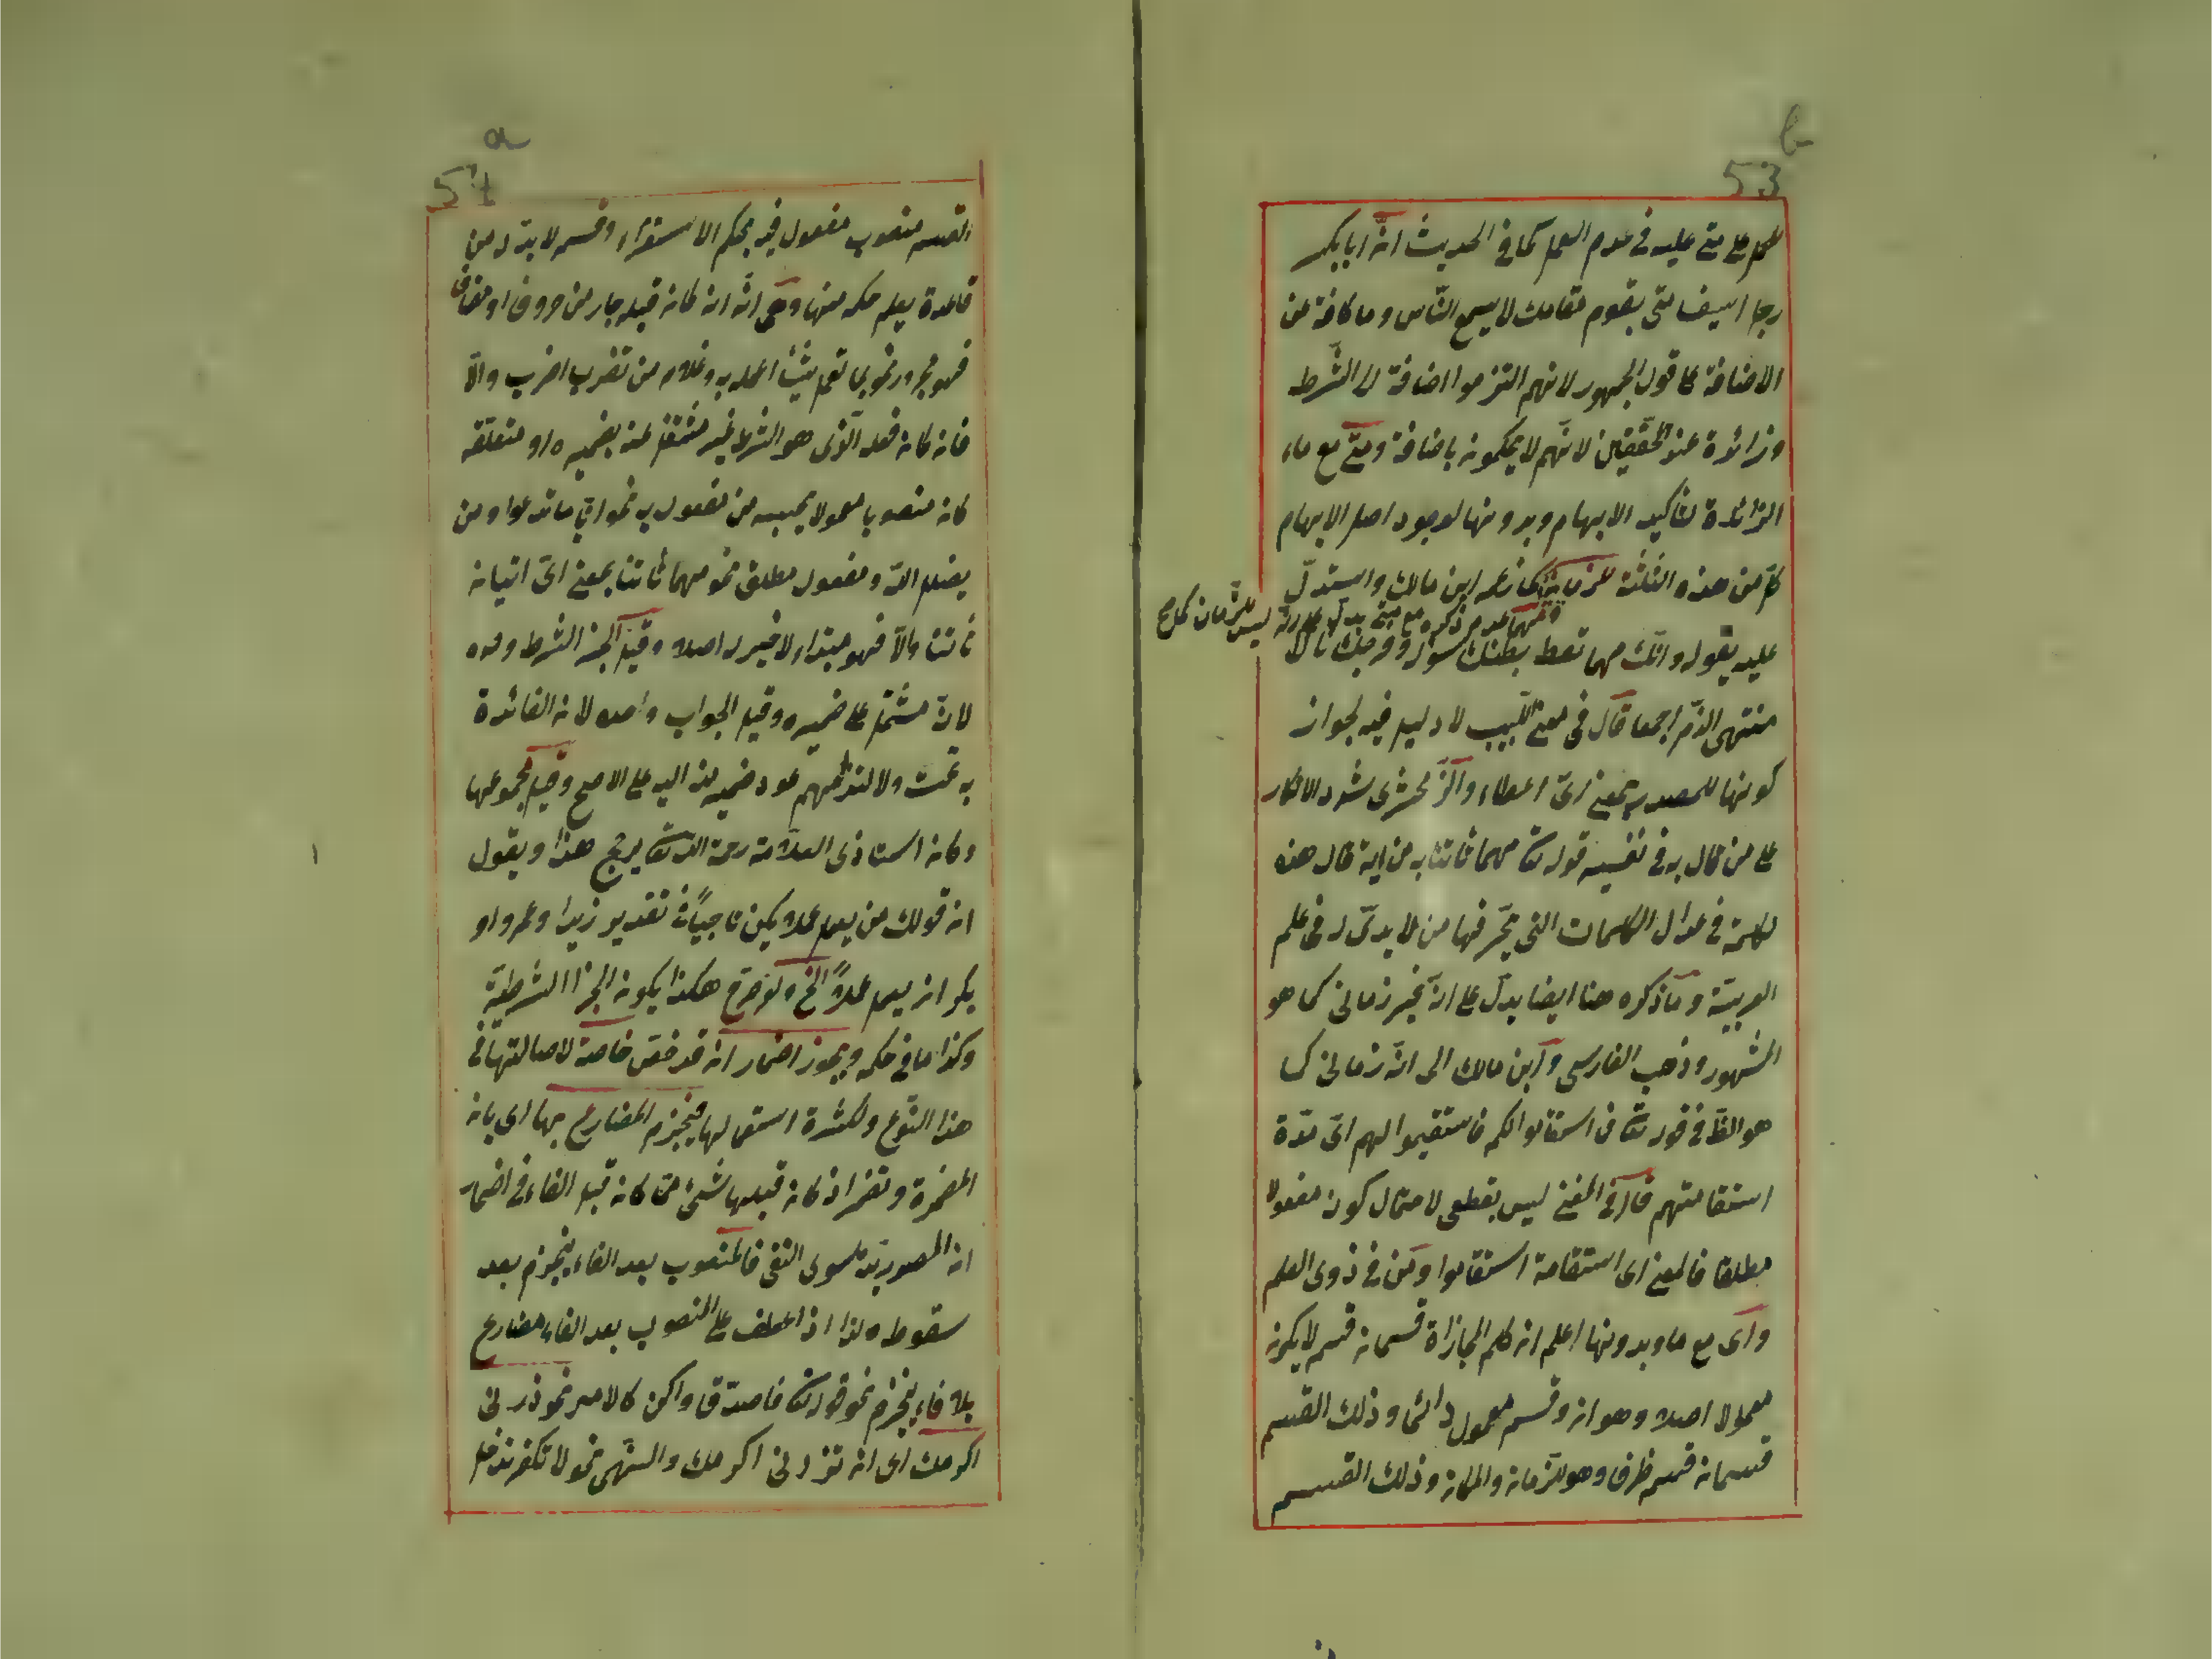 b
53
على متى عليه فى عدم العمل كما فى الحديث انّ ابا بكر
رجل اسيف متى يقوم مقامك لا يسمع النّاس وما كافة عن
الاضافة على قول الجمهور لانهم التزموا اضافة الى الشّرط
وزائدة عند المحقّقين لانّهم لا يحكمون باضافة ومتى مع ماء
الزائدة لتأكيد الابهام وبدونها لوجود اصل الابهام
كلّ من هذه الثلثة للزمان كما زعمه ابن مالك واستدلّ
عليه بقوله وانّك مهما تعط بطنك سؤله وفرجك نالا
منتهى الذّم اجمعا قال فى مغنى اللّبيب لا دليل فيه لجواز
كونها للمصدر بمعنى اىّ اعطاء والزّمخشرى شدد الانكار
على من قال به فى تفسير قوله تع مهما تأتنا به من اية قال هذه
الكلمة فى عداد الكلمات التى يحرّفها من لا يد له فى علم
العربيّة وما ذكره هنا ايضا يدلّ على انّه غير زمانى كما هو
المشهور وذهب الفارسى وابن مالك الى انّه زمانى كما
هو الظ فى قوله تع فما استقاموا لكم فاستقيموا لهم اىّ مدّة
استقامتهم قال فى المغنى ليس بقطعى لاحتمال كونه مفعولا
مطلقا فالمعنى اى استقامة استقاموا ومن فى ذوى العلم
واى مع ما وبدونها اعلم ان كلم المجازاة قسمان قسم لا يكون
معمولا اصلا وهو ان وقسم معمول دائما وذلك القسم
قسمان قسم ظرف وهو للزمان والمكان وذلك القسم
a
54
القسم منصوب مفعول فيه بحكم الاستقراء وقسم لا بدّ له من
قاعدة يعلم حكمه منها وهى انّه ان كان قبله جار من حروف او مضاف
فهو مجرور نحو بما تعمل شيئا اعمل به وغلام من تضرب اضرب والّا
فان كان فعله الّذى هو الشرط غير مشتغل عنه بضميره او متعلّقه
كان منصوبا معمولا بحسبه من مفعول به نحو اياما تدعوا ومن
يضلل اللّه ومفعول مطلق نحو مهما تأتنا بمعنى اىّ اتيان
تأتنا والّا فهو مبتداء لا خبر له اصلا وقيل الخبر الشرط وحده
لانّه مشتمل على ضميره وقيل الجواب وحده لان الفائدة
به تمت ولالتزامهم عود ضمير منه اليه على الاصح وقيل مجموعهما
وكان استاذى العلامة رحمه اللّه تع يرجح هذا ويقول
ان قولك من يعمل عملا يكن ناجيًا فى تقدير زيدا وعمرو او
بكر ان يعمل عملًا الخ ولو صرّح هكذا يكون الخبر الشرطيّة
وكذا ما فى حكمه ويجوز اضمار ان قد خصّ خاصّة لاصالتها فى
هذا النّوع ولكثرة استعمالها فينجزم المضارع بها اى بان
المضمرة وتضمر اذ كان قبلها شئ ممّا كان قبل الفاء فى اضمار
ان المصدريّة سوى النفى فالمنصوب بعد الفاء ينجزم بعد
سقوطه لذا اذا عطف على المنصوب بعد الفاء مضارع
بلا فاء ينجزم نحو قوله تع فاصدّق واكن كالامر نحو زرنى
اكرمك اى ان تزرنى اكرمك والنّهى نحو لا تكفر تدخل